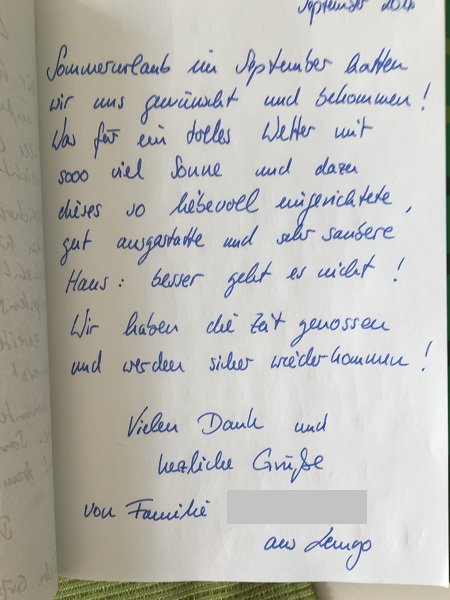 September
Sommerurlaub im September hatten
wir uns gewünscht und bekommen!
Was für ein tolles Wetter mit
sooo viel Sonne und dazu
dieses so liebevoll eingerichtete,
gut ausgestatte und sehr saubere
Haus: besser geht es nicht!
Wir haben die Zeit genossen
und werden sicher wiederkommen!
Vielen Dank und
herzliche Grüße
von Familie
aus Lemgo